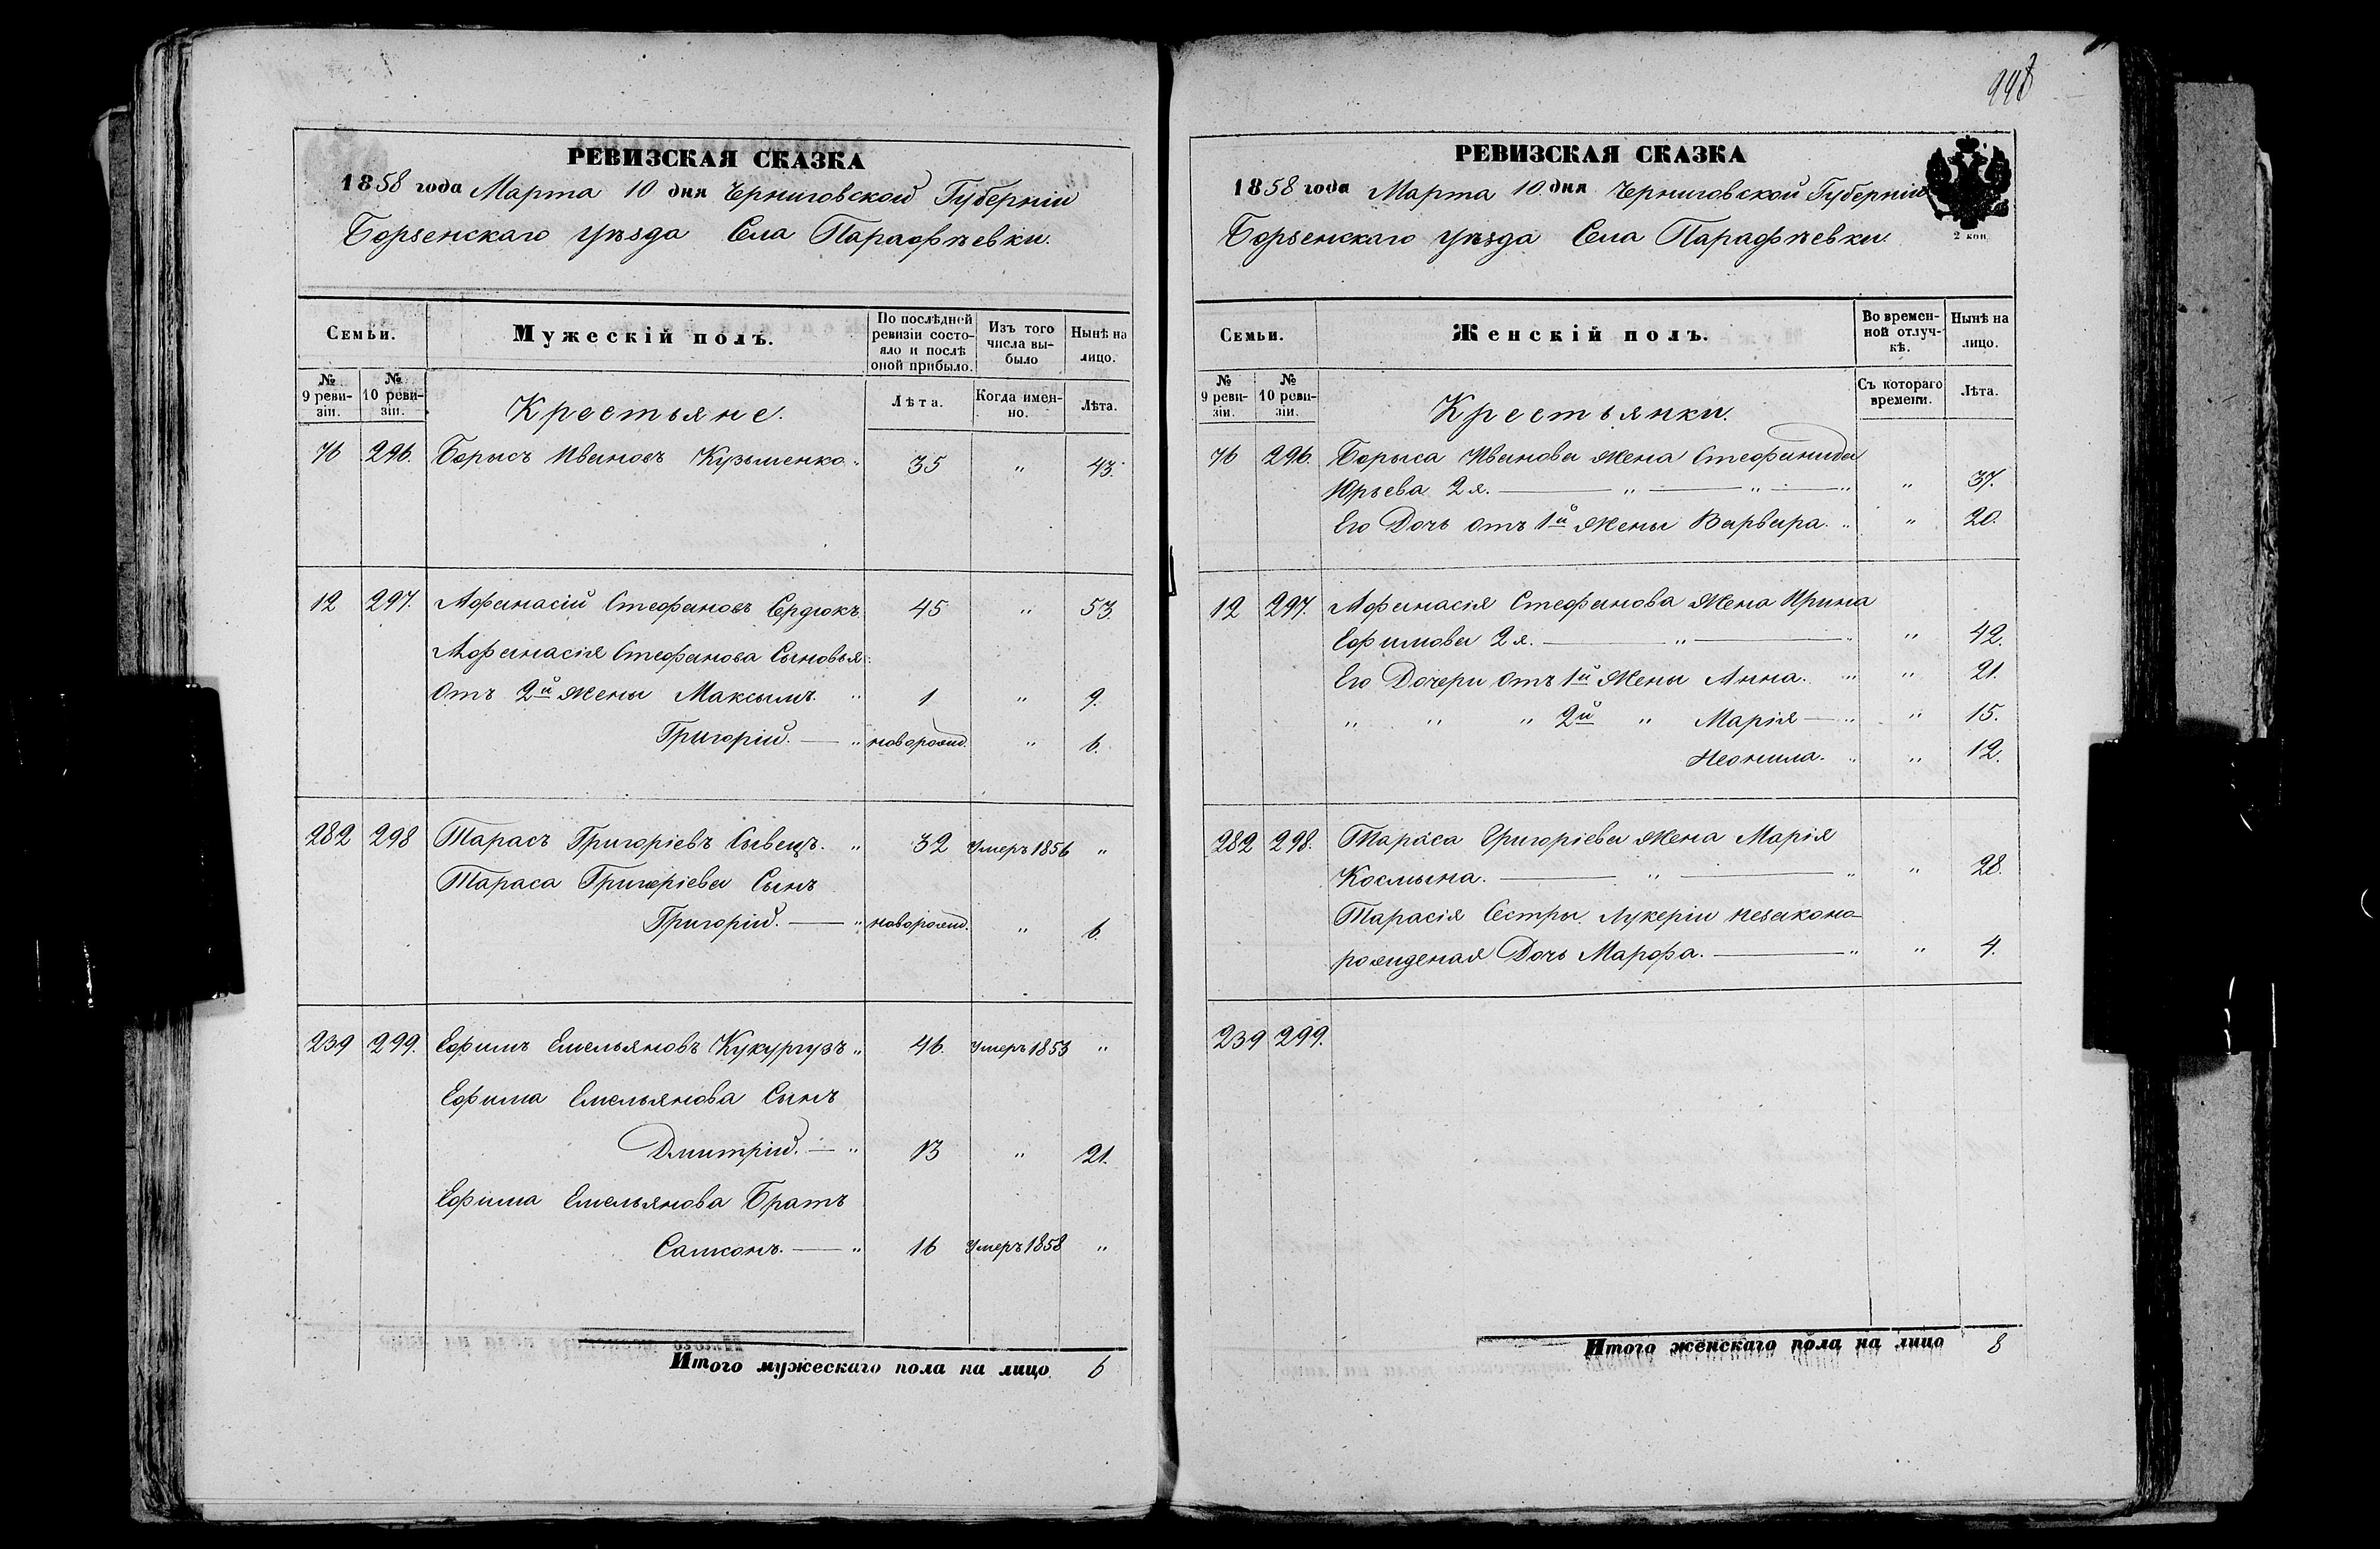 РЕВИЗСКАЯ СКАЗКА
1858 года Марта 10 дня Черниговской Губерніи
Борзенскаго уѣзда Села Парафѣевки.
Семьи.
Мужескій полъ.
По послѣдней ревизіи состояло и послѣ оной прибыло.
Изъ того числа выбыло
Нынѣ на лицо.
№ 9 ревизіи.
№ 10 ревизіи.
Крестьяне.
Лѣта.
Когда именно.
Лѣта.
76 296. Борысъ Ивановъ Кузьменко „ 35 „ 43.
12 297. Афанасій Стефановъ Сердюкъ. 45 „ 53.
Афанасія Стефанова Сыновья:
Отъ 2й Жены Максымъ. „ 1 „ 9.
Григорій. — „ новорожд. „ 6.
282 298 Тарасъ Григоріевъ Сывецъ. „ 32 Умеръ 1856 „
Тараса Григоріева Сынъ
Григорій. — „ новорожд. „ 6.
239 299. Ефимъ Емельяновъ Кукургузъ „ 46. Умеръ 1853 „
Ефима Емельянова Сынъ
Дмитрій. — „ 13 „ 21.
Ефима Емельянова Братъ
Самсонъ. — „ 16 Умеръ 1858 „
Итого мужескаго пола на лицо 6
РЕВИЗСКАЯ СКАЗКА
1858 года Марта 10 дня Черниговской Губерніи
Борзенскаго уѣзда Села Парафѣевки.
2 коп
Семьи.
Женскій полъ.
Во временной отлучкѣ.
Нынѣ на лицо.
№ 9 ревизіи.
№ 10 ревизіи.
Крестьянки.
Съ котораго времени.
Лѣта.
76 296. Борыса Иванова Жена Стефанида
Юрьева 2я. — „ — „ — „ „ 37.
Его Дочь отъ 1й Жены Варвара. „ „ 20.
12 297. Афанасія Стефанова Жена Ирина
Ефимова 2я. — „ — „ „ 42.
Его Дочери отъ 1й Жены Анна. „ „ 21.
„ „ „ 2й „ Марія — „ „ 15.
Неонила. „ „ 12.
282 298. Тараса Григоріева Жена Марія
Космына. — „ — „ „ 28.
Тарасія Сестры Лукеріи незаконо-
рожденая Дочь Марфа. — „ „ 4.
239 299.
Итого женскаго пола на лицо 8